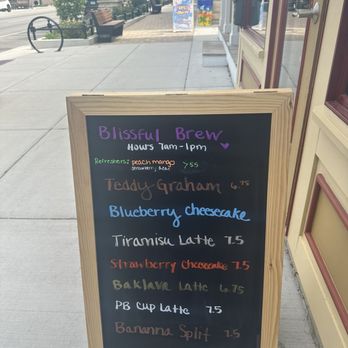 Blissful Brew
Hours 7am-1pm
Refreshers: peach mango 7.55
strawberry acai
Teddy Graham 6.75
Blueberry cheesecake
Tiramisu Latte 7.5
Strawberry Cheesecake 7.5
Baklava Latte 6.75
PB Cup Latte 7.5
Bananna Split 7.5